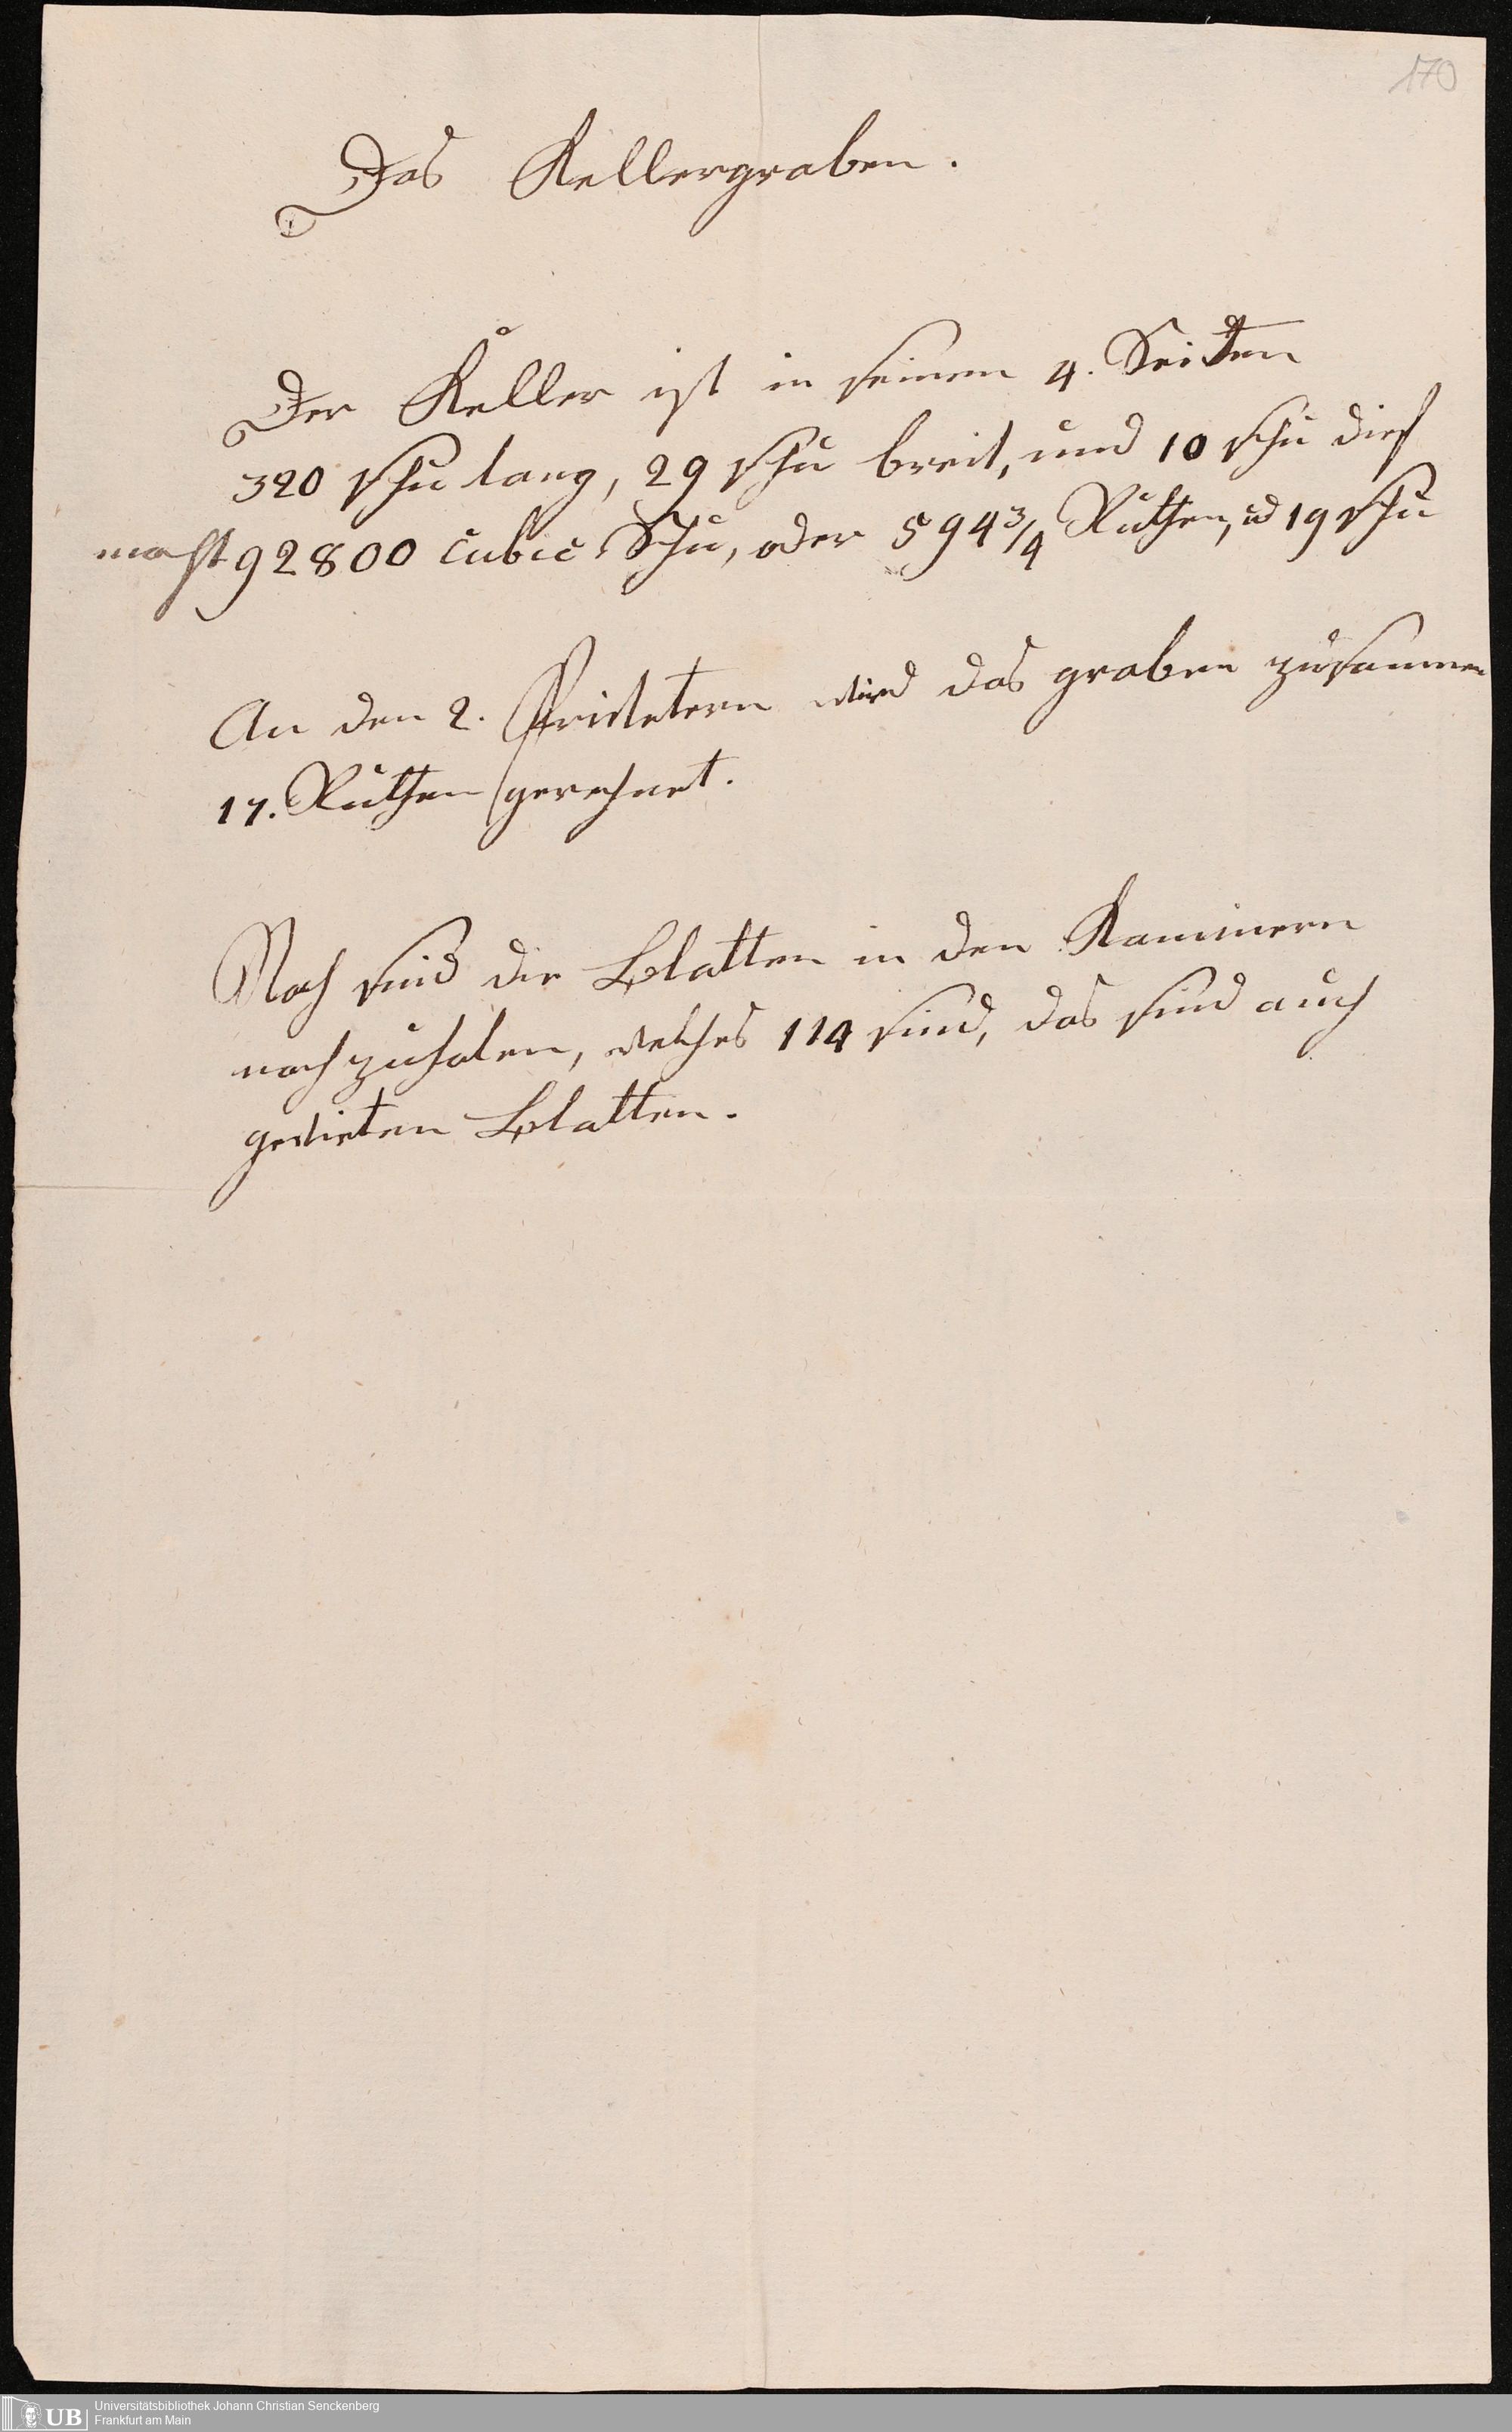 170
Das Kellergraben.
Der Keller ist in seinen 4. Seiten
320 schu lang, 29 schu breit, und 10 schu dief
macht 92800 Cubic Schu, oder 594 3/4 Ruthen, ud 19 schu
An den 2. wird das graben zusammen
17. Ruthen gerechnet.
Noch sind die Blatten in den Kaminern
nachzuholen, welches 114 sind, das sind auch
Blatten.
UB Universitätsbibliothek Johann Christian Senckenberg
Frankfurt am Main